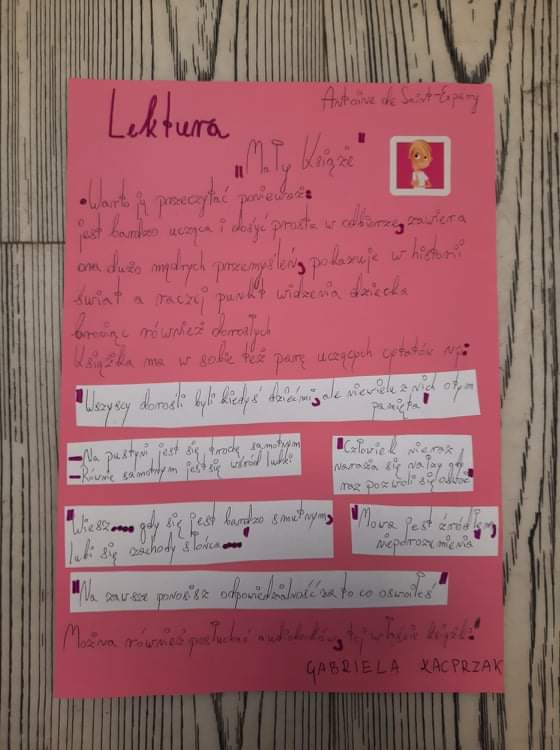 Antoine de Saint-Expéry
Lektura
"Mały Książe"
•Warto ją przeczytać ponieważ:
jest bardzo ucząca i dosyć prosta w odbiorze, zawiera
ona dużo mądrych przemyśleń, pokazuje w historii
świat a raczej punkt widzenia dziecka
broniąc również dorosłych
Książka ma w sobie też parę uczących cytatów np:
"Wszyscy dorośli byli kiedyś dziećmi, ale niewielu z nich o tym
pamięta"
– Na pustyni jest się trochę samotnym
– Równie samotnym jest się wśród ludzi
"Człowiek nieraz
naraża się na łzy gdy
raz pozwoli się oswoić"
"Wiesz.... gdy się jest bardzo smutnym,
lubi się zachody słońca..."
"Mowa jest źródłem
nieporozumienia"
"Na zawsze ponosisz odpowiedzialność za to co oswoiłeś"
Można również posłuchać audiobooków, tej właśnie książki!
GABRIELA KACPRZAK